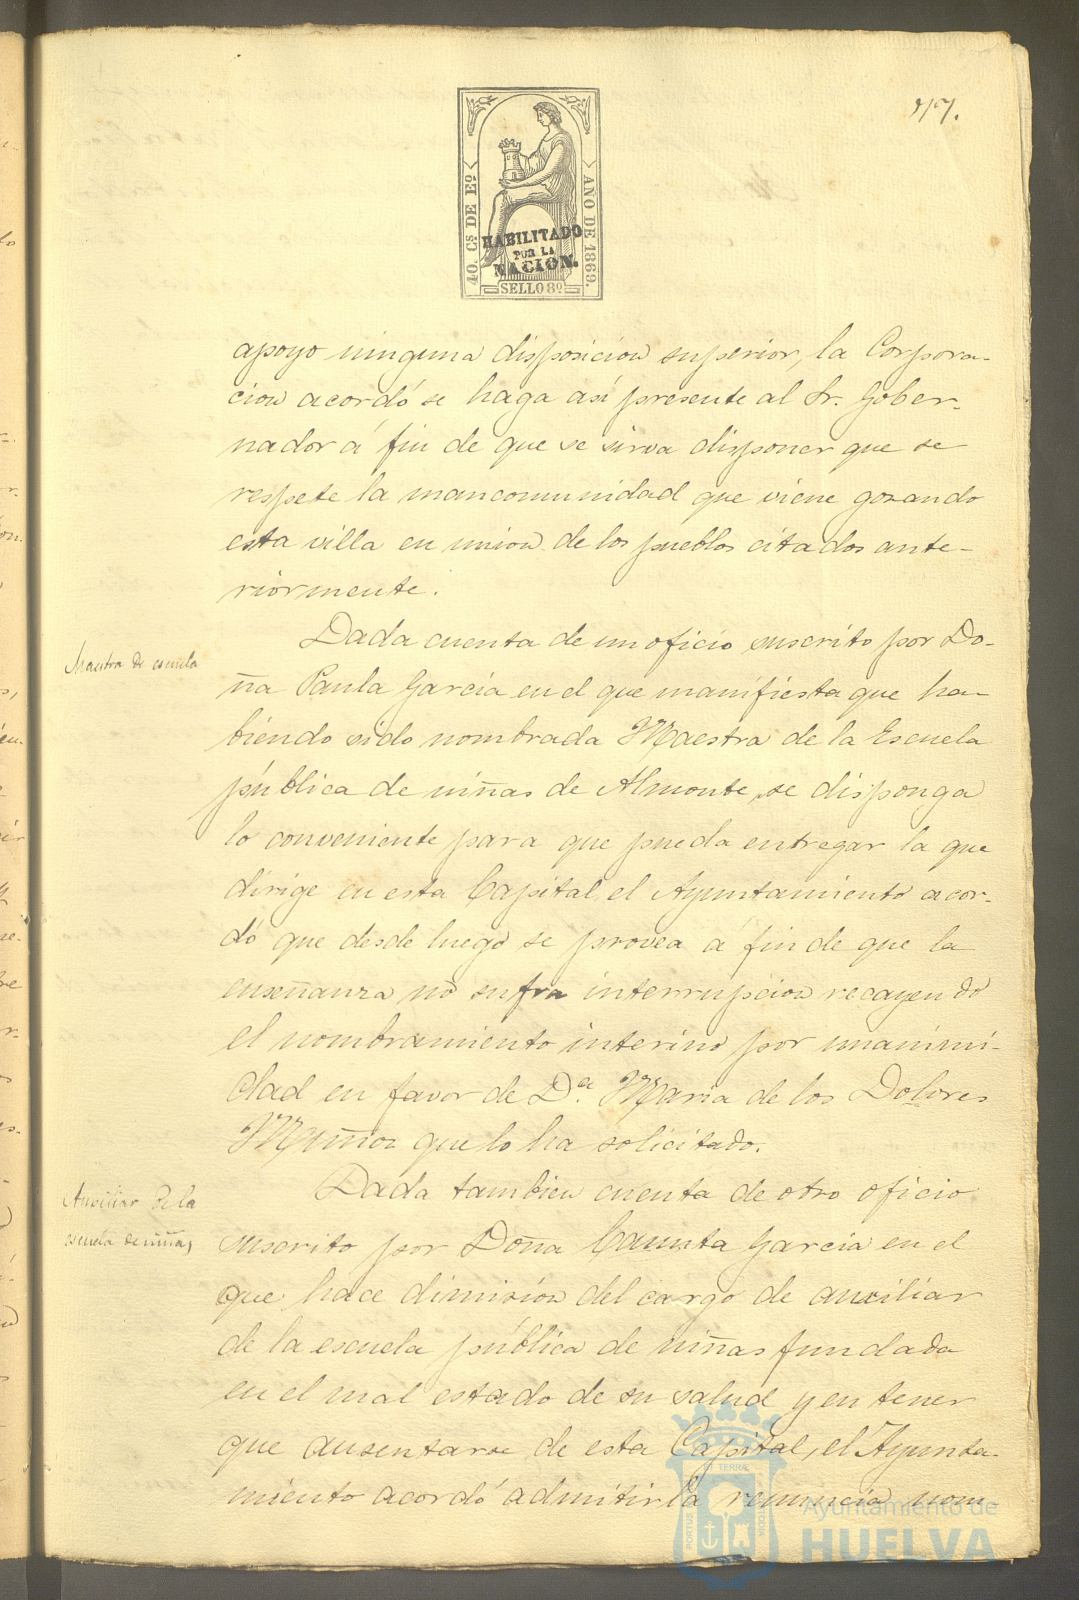 47.
40. Cs DE Eo
AÑO DE 1869.
HABILITADO
POR LA
NACION.
SELLO 8º
apoyo ninguna disposicion superior, la Corpora-
cion acordó se haga asi presente al Sr. Gober-
nador á fin de que se sirva disponer que se
respete la mancomunidad que viene gozando
esta villa en union de los pueblos citados ante-
riormente.
Maestra de escuela
Dada cuenta de un oficio suscrito por Do-
ña Paula Garcia en el que manifiesta que ha-
biendo sido nombrada Maestra de la Escuela
pública de niñas de Almonte, se disponga
lo conveniente para que pueda entregar la que
dirige en esta Capital, el Ayuntamiento acor-
dó que desde luego se provea á fin de que la
enseñanza no sufra interrupcion recayendo
el nombramiento interino por unanimi-
dad en favor de D.ª Maria de los Dolores
Muñoz que lo ha solicitado.
Auxiliar de la
escuela de niñas
Dada tambien cuenta de otro oficio
suscrito por Doña Garcia en el
que hace dimision del cargo de auxiliar
de la escuela pública de niñas fundada
en el mal estado de su salud y en tener
que ausentarse de esta Capital, el Ayunta-
miento acordó admitir la renuncia nom-
Ayuntamiento de
HUELVA